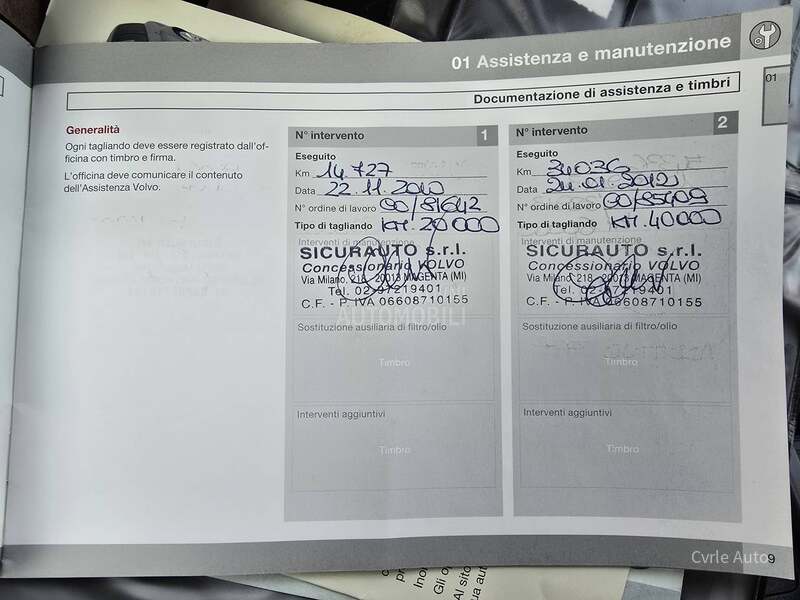 01 Assistenza e manutenzione
01
Documentazione di assistenza e timbri
Generalità
Ogni tagliando deve essere registrato dall'of-
ficina con timbro e firma.
L'officina deve comunicare il contenuto
dell'Assistenza Volvo.
N° intervento 1
Eseguito
Km 14.727
Data 22.11.2010
N° ordine di lavoro 00/81642
Tipo di tagliando KM. 20000
Interventi di manutenzione
SICURAUTO s.r.l.
Concessionario VOLVO
Via Milano, 218 - 20013 MAGENTA (MI)
Tel. 02-97219401
C.F. - P. IVA 06608710155
AUTOMOBILI
Sostituzione ausiliaria di filtro/olio
Timbro
Interventi aggiuntivi
Timbro
N° intervento 2
Eseguito
Km 34036
Data 24.01.2012
N° ordine di lavoro 00/85409
Tipo di tagliando KM. 40000
Interventi di manutenzione
SICURAUTO s.r.l.
Concessionario VOLVO
Via Milano, 218 - 20013 MAGENTA (MI)
Tel. 02-97219401
C.F. - P. IVA 06608710155
Sostituzione ausiliaria di filtro/olio
Timbro
Interventi aggiuntivi
Timbro
9
Cvrle Auto
Gli o
Al sito